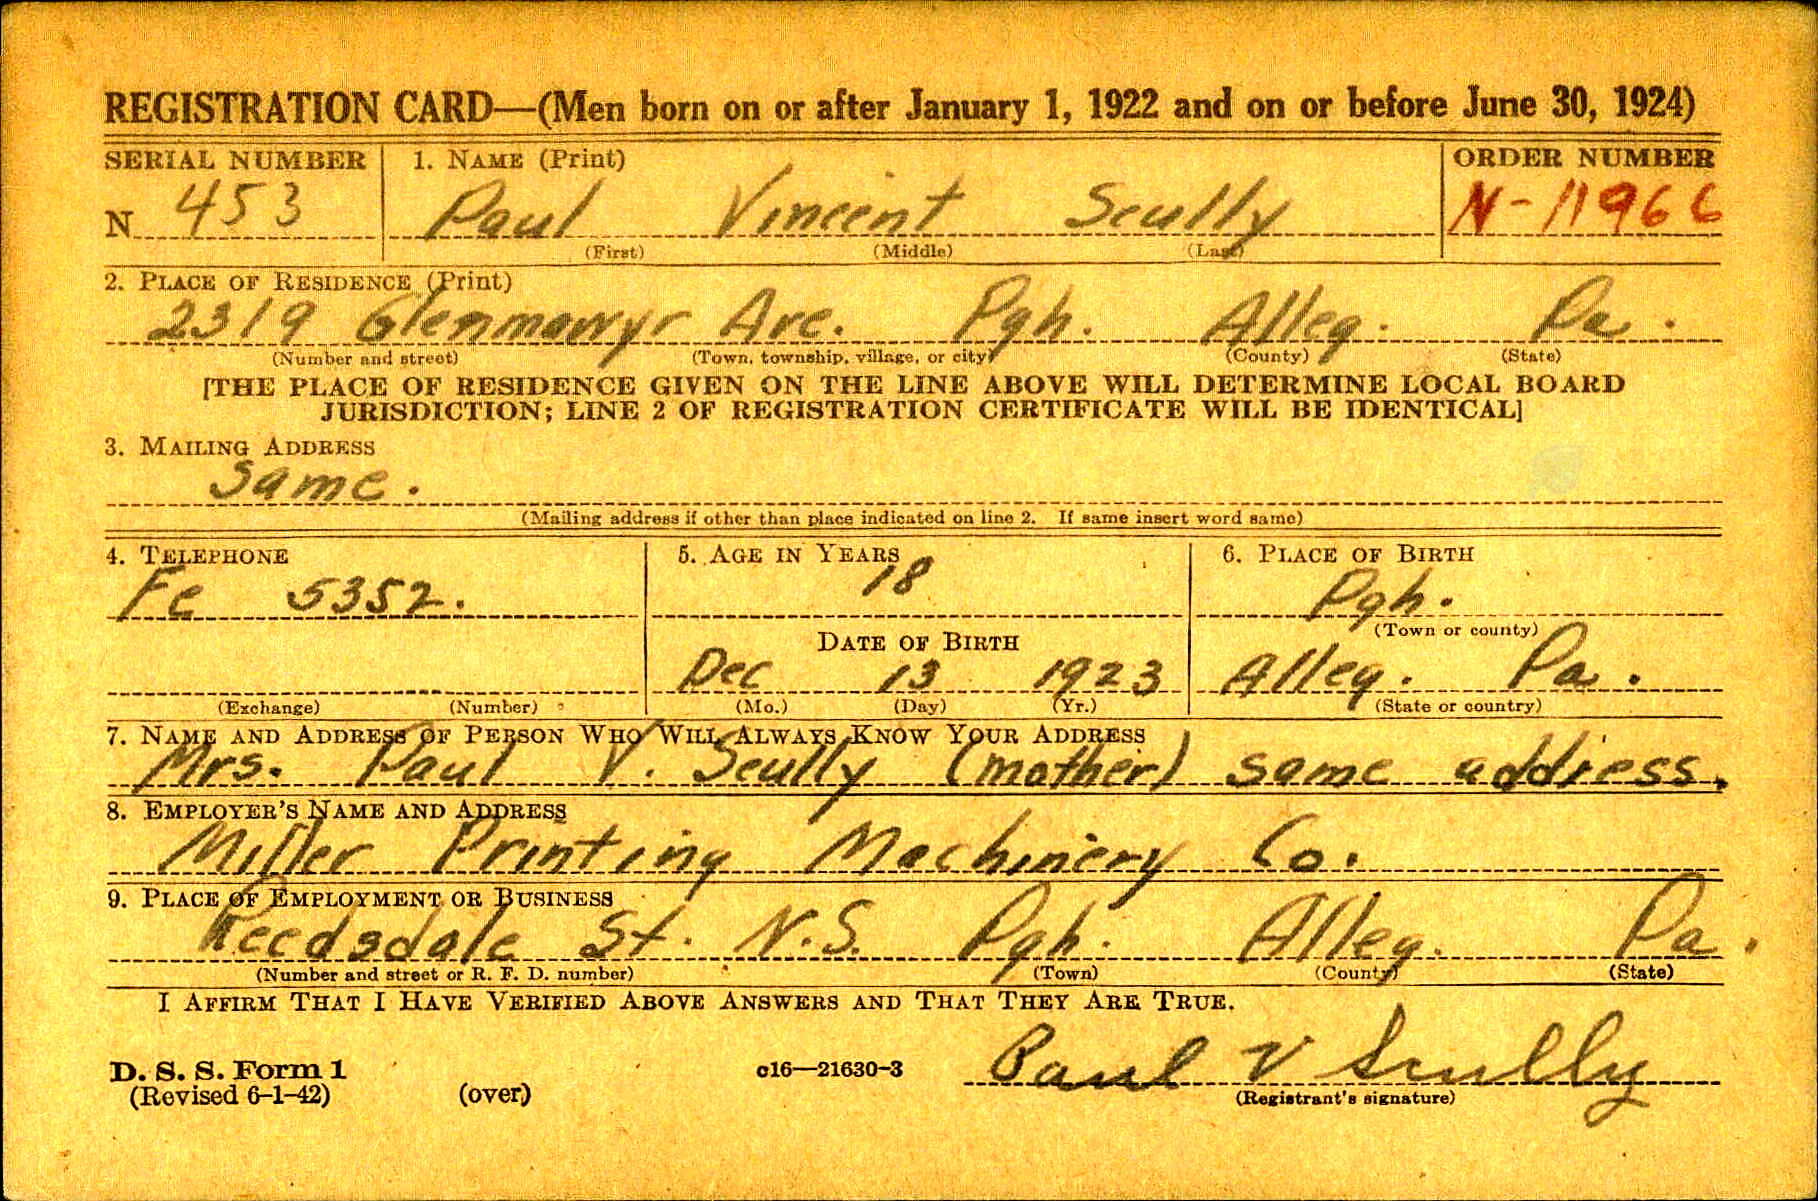 REGISTRATION CARD—(Men born on or after January 1, 1922 and on or before June 30, 1924)
SERIAL NUMBER 1. NAME (Print) ORDER NUMBER
N 453 Paul Vincent Scully N-11966
(First) (Middle) (Last)
2. PLACE OF RESIDENCE (Print)
2319 Glenmawyr Ave. Pgh. Alleg. Pa.
(Number and street) (Town, township, village, or city) (County) (State)
[THE PLACE OF RESIDENCE GIVEN ON THE LINE ABOVE WILL DETERMINE LOCAL BOARD
JURISDICTION; LINE 2 OF REGISTRATION CERTIFICATE WILL BE IDENTICAL]
3. MAILING ADDRESS
Same.
(Mailing address if other than place indicated on line 2. If same insert word same)
4. TELEPHONE 5. AGE IN YEARS 6. PLACE OF BIRTH
Fe 5352. 18 Pgh.
(Town or county)
DATE OF BIRTH
Dec 13 1923 Alleg. Pa.
(Exchange) (Number) (Mo.) (Day) (Yr.) (State or country)
7. NAME AND ADDRESS OF PERSON WHO WILL ALWAYS KNOW YOUR ADDRESS
Mrs. Paul V. Scully (mother) same address.
8. EMPLOYER'S NAME AND ADDRESS
Miller Printing Machinery Co.
9. PLACE OF EMPLOYMENT OR BUSINESS
Reedsdale St. N.S. Pgh. Alleg. Pa.
(Number and street or R. F. D. number) (Town) (County) (State)
I AFFIRM THAT I HAVE VERIFIED ABOVE ANSWERS AND THAT THEY ARE TRUE.
D. S. S. Form 1 c16—21630-3 Paul V Scully
(Revised 6-1-42) (over) (Registrant's signature)